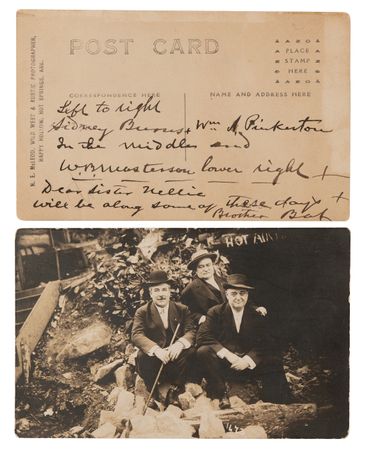 POST CARD
PLACE
STAMP
HERE
CORRESPONDENCE HERE
NAME AND ADDRESS HERE
N. E. McLEOD, WILD WEST & RUSTIC PHOTOGRAPHER,
HAPPY HOLLOW, HOT SPRINGS, ARK.
Left to right
Sidney Burns + Wm A Pinkerton
In the middle and
W. B. Masterson lower right +
Dear Sister Nellie
will be along some of these days +
Brother Bat
HOT